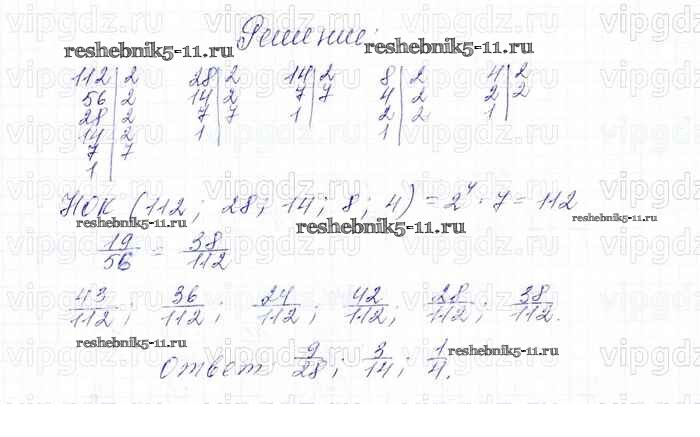 Решение:
reshebnik5-11.ru reshebnik5-11.ru
112 | 2 28 | 2 14 | 2 8 | 2 4 | 2
56 | 2 14 | 2 7 | 7 4 | 2 2 | 2
28 | 2 7 | 7 1 | 2 | 2 1 |
14 | 2 1 | 1 |
7 | 7
1 |
НОК (112; 28; 14; 8; 4) = 2⁴ · 7 = 112
reshebnik5-11.ru reshebnik5-11.ru reshebnik5-11.ru
19/56 = 38/112
43/112; 36/112; 24/112; 42/112; 28/112; 38/112.
reshebnik5-11.ru reshebnik5-11.ru
Ответ 9/28; 3/14; 1/4.